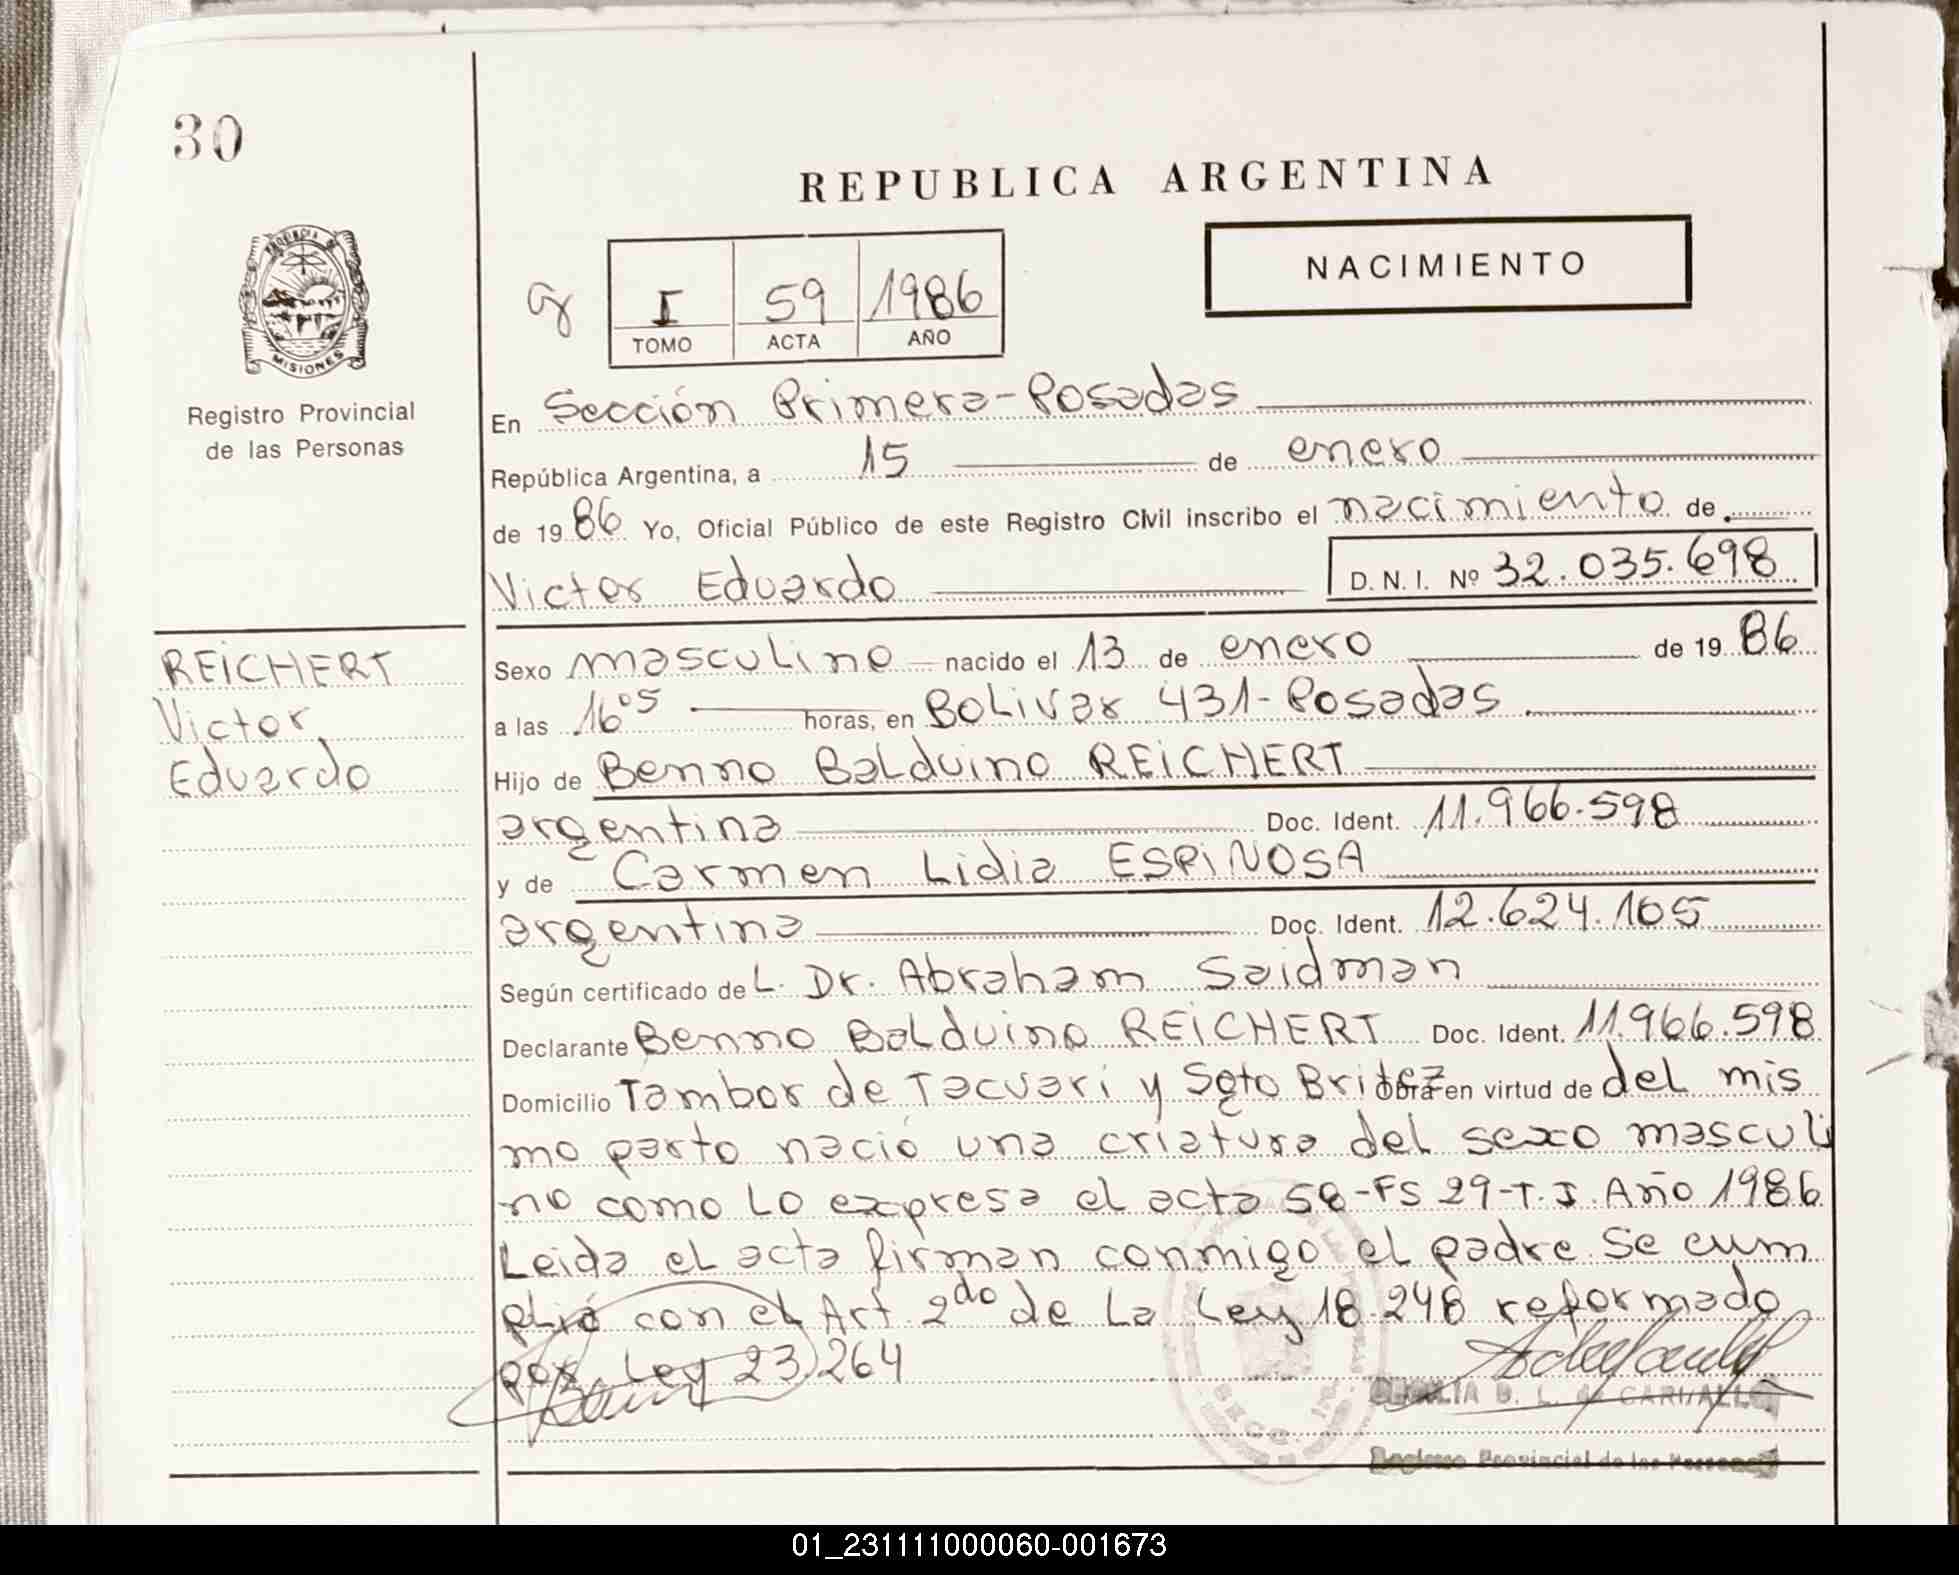 30
REPUBLICA ARGENTINA
NACIMIENTO
I 59 1986
TOMO ACTA AÑO
PROVINCIA DE
MISIONES
Registro Provincial
de las Personas
En Sección Primera-Posadas
República Argentina, a 15 de enero
de 1986 Yo, Oficial Público de este Registro Civil inscribo el nacimiento de
Victor Eduardo D. N. I. Nº 32.035.698
REICHERT
Victor
Eduardo
Sexo masculino nacido el 13 de enero de 1986
a las 16 05 horas, en Bolivar 431-Posadas
Hijo de Benno Balduino REICHERT
argentina Doc. Ident. 11.966.598
y de Carmen Lidia ESPINOSA
argentina Doc. Ident. 12.624.105
Según certificado del. Dr. Abraham Saidman
Declarante Benno Balduino REICHERT Doc. Ident. 11.966.598
Domicilio Tambor de Tacuari y Sgto Britez obra en virtud de del mis
mo parto nació una criatura del sexo masculi
no como lo expresa el acta 58-FS 29-T.I. Año 1986
Leida el acta firman conmigo el padre. Se cum
plió con el Art 2do de la Ley 18.248 reformado
por Ley 23.264
B. L. CARVALLO
Registro Provincial de las Personas
01_231111000060-001673